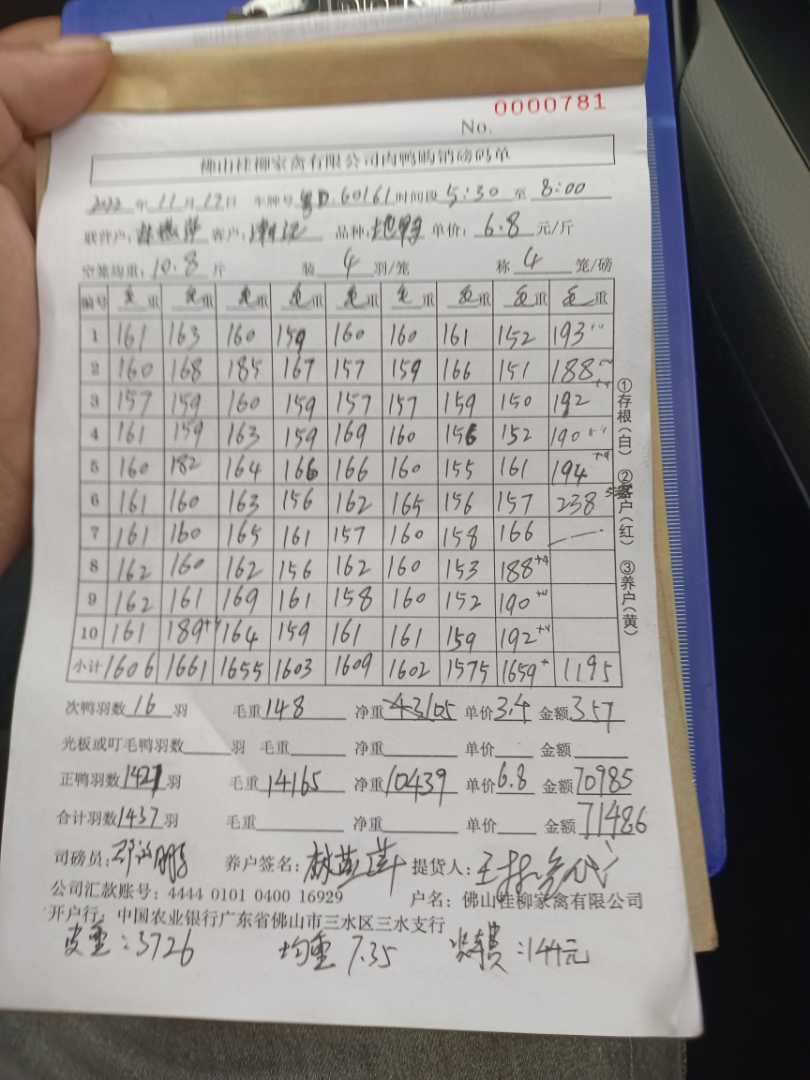 No. 0000781
佛山桂柳家禽有限公司肉鸭购销磅码单
2022 年 11 月 17 日 车牌号 粤D.60161 时间段 5:30 至 8:00
联营户: 客户: 品种: 单价: 6.8 元/斤
空笼均重: 10.8 斤 装 4 羽/笼 称 4 笼/磅
编号 毛重 毛重 毛重 毛重 毛重 毛重 毛重 毛重 毛重
1 161 163 160 159 160 160 161 152 193
2 160 168 185 167 157 159 166 151 188
3 157 159 160 159 157 157 159 150 192
4 161 159 163 159 169 160 156 152 190
5 160 182 164 166 166 160 155 161 194
6 161 160 163 156 162 165 156 157 238
7 161 160 165 161 157 160 158 166
8 162 160 162 156 162 160 153 188+4
9 162 161 169 161 158 160 152 190+4
10 161 189+4 164 159 161 161 159 192+4
小计 1606 1661 1655 1603 1609 1602 1575 1659+ 1195
①存根(白) ②客户(红) ③养户(黄)
次鸭羽数 16 羽 毛重 148 净重 105 单价 3.4 金额 357
光板或叮毛鸭羽数 羽 毛重 净重 单价 金额
正鸭羽数 1421 羽 毛重 14165 净重 10439 单价 6.8 金额 70985
合计羽数 1437 羽 毛重 净重 单价 金额 71486
司磅员: 养户签名: 提货人:
公司汇款账号: 4444 0101 0400 16929 户名: 佛山桂柳家禽有限公司
开户行: 中国农业银行广东省佛山市三水区三水支行
皮重:3726 均重 7.35 装车费:144元